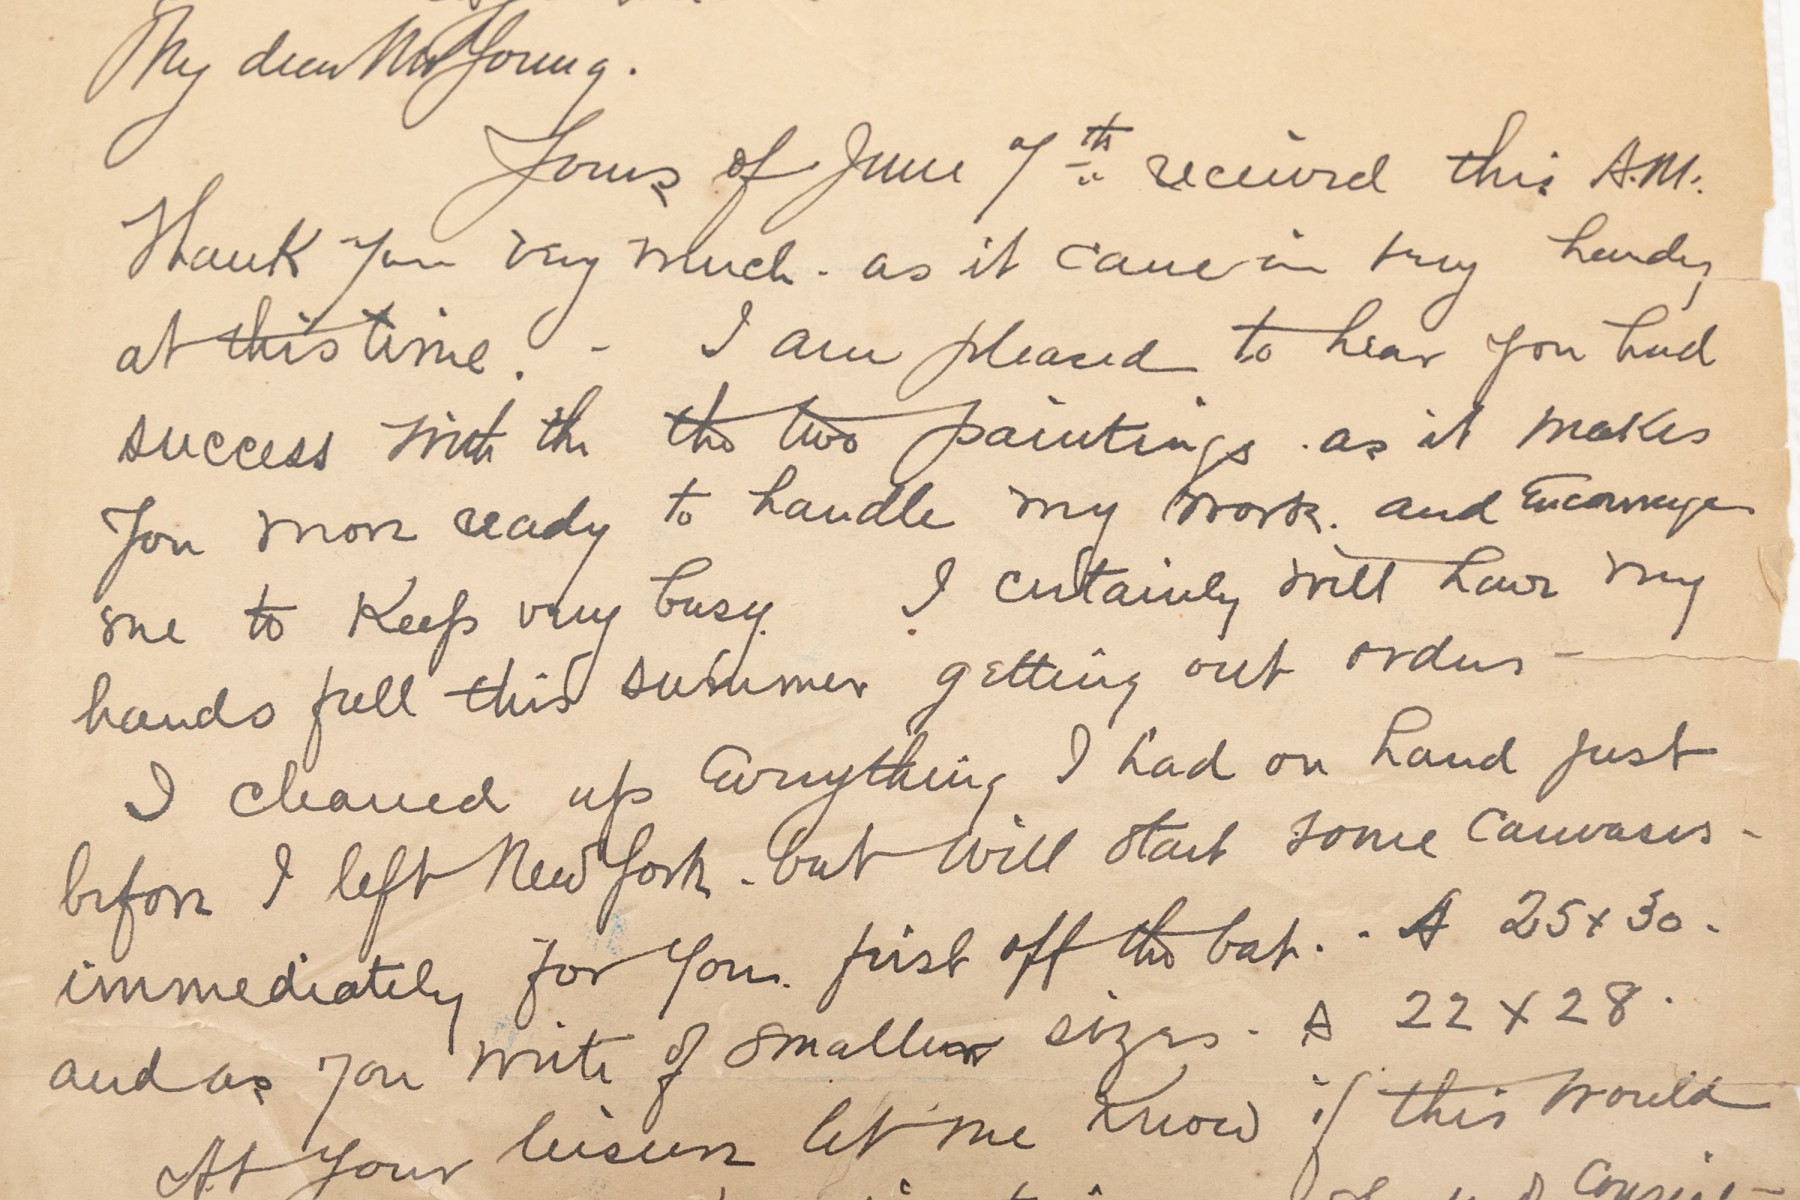 My dear Mr Young.
Yours of June 7th received this A.M.
Thank you very much. as it came in very handy
at this time. - I am pleased to hear you had
success with the the two paintings. as it makes
you more ready to handle my work. and encourage
me to keep very busy. I certainly will have my
hands full this summer getting out orders -
I cleaned up everything I had on hand just
before I left New York. but will start some canvases -
immediately for you. first off the bat. - A 25 x 30.
and as you write of smaller sizes - A 22 x 28.
At your leisure let me know if this would